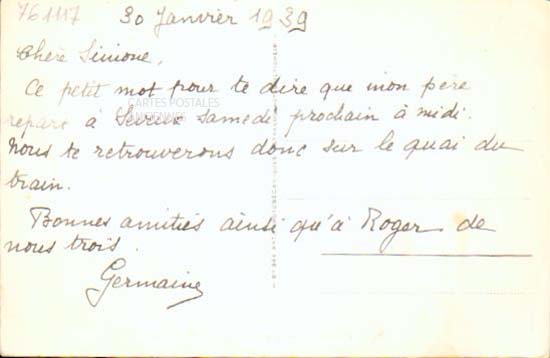 761117
30 Janvier 1939
Chère Simone,
Ce petit mot pour te dire que mon père
repart à samedi prochain à midi.
Nous te retrouverons donc sur le quai du
train.
Bonnes amitiés ainsi qu'à Roger de
nous trois.
Germaine
CARTES POSTALES
ANCIENNES